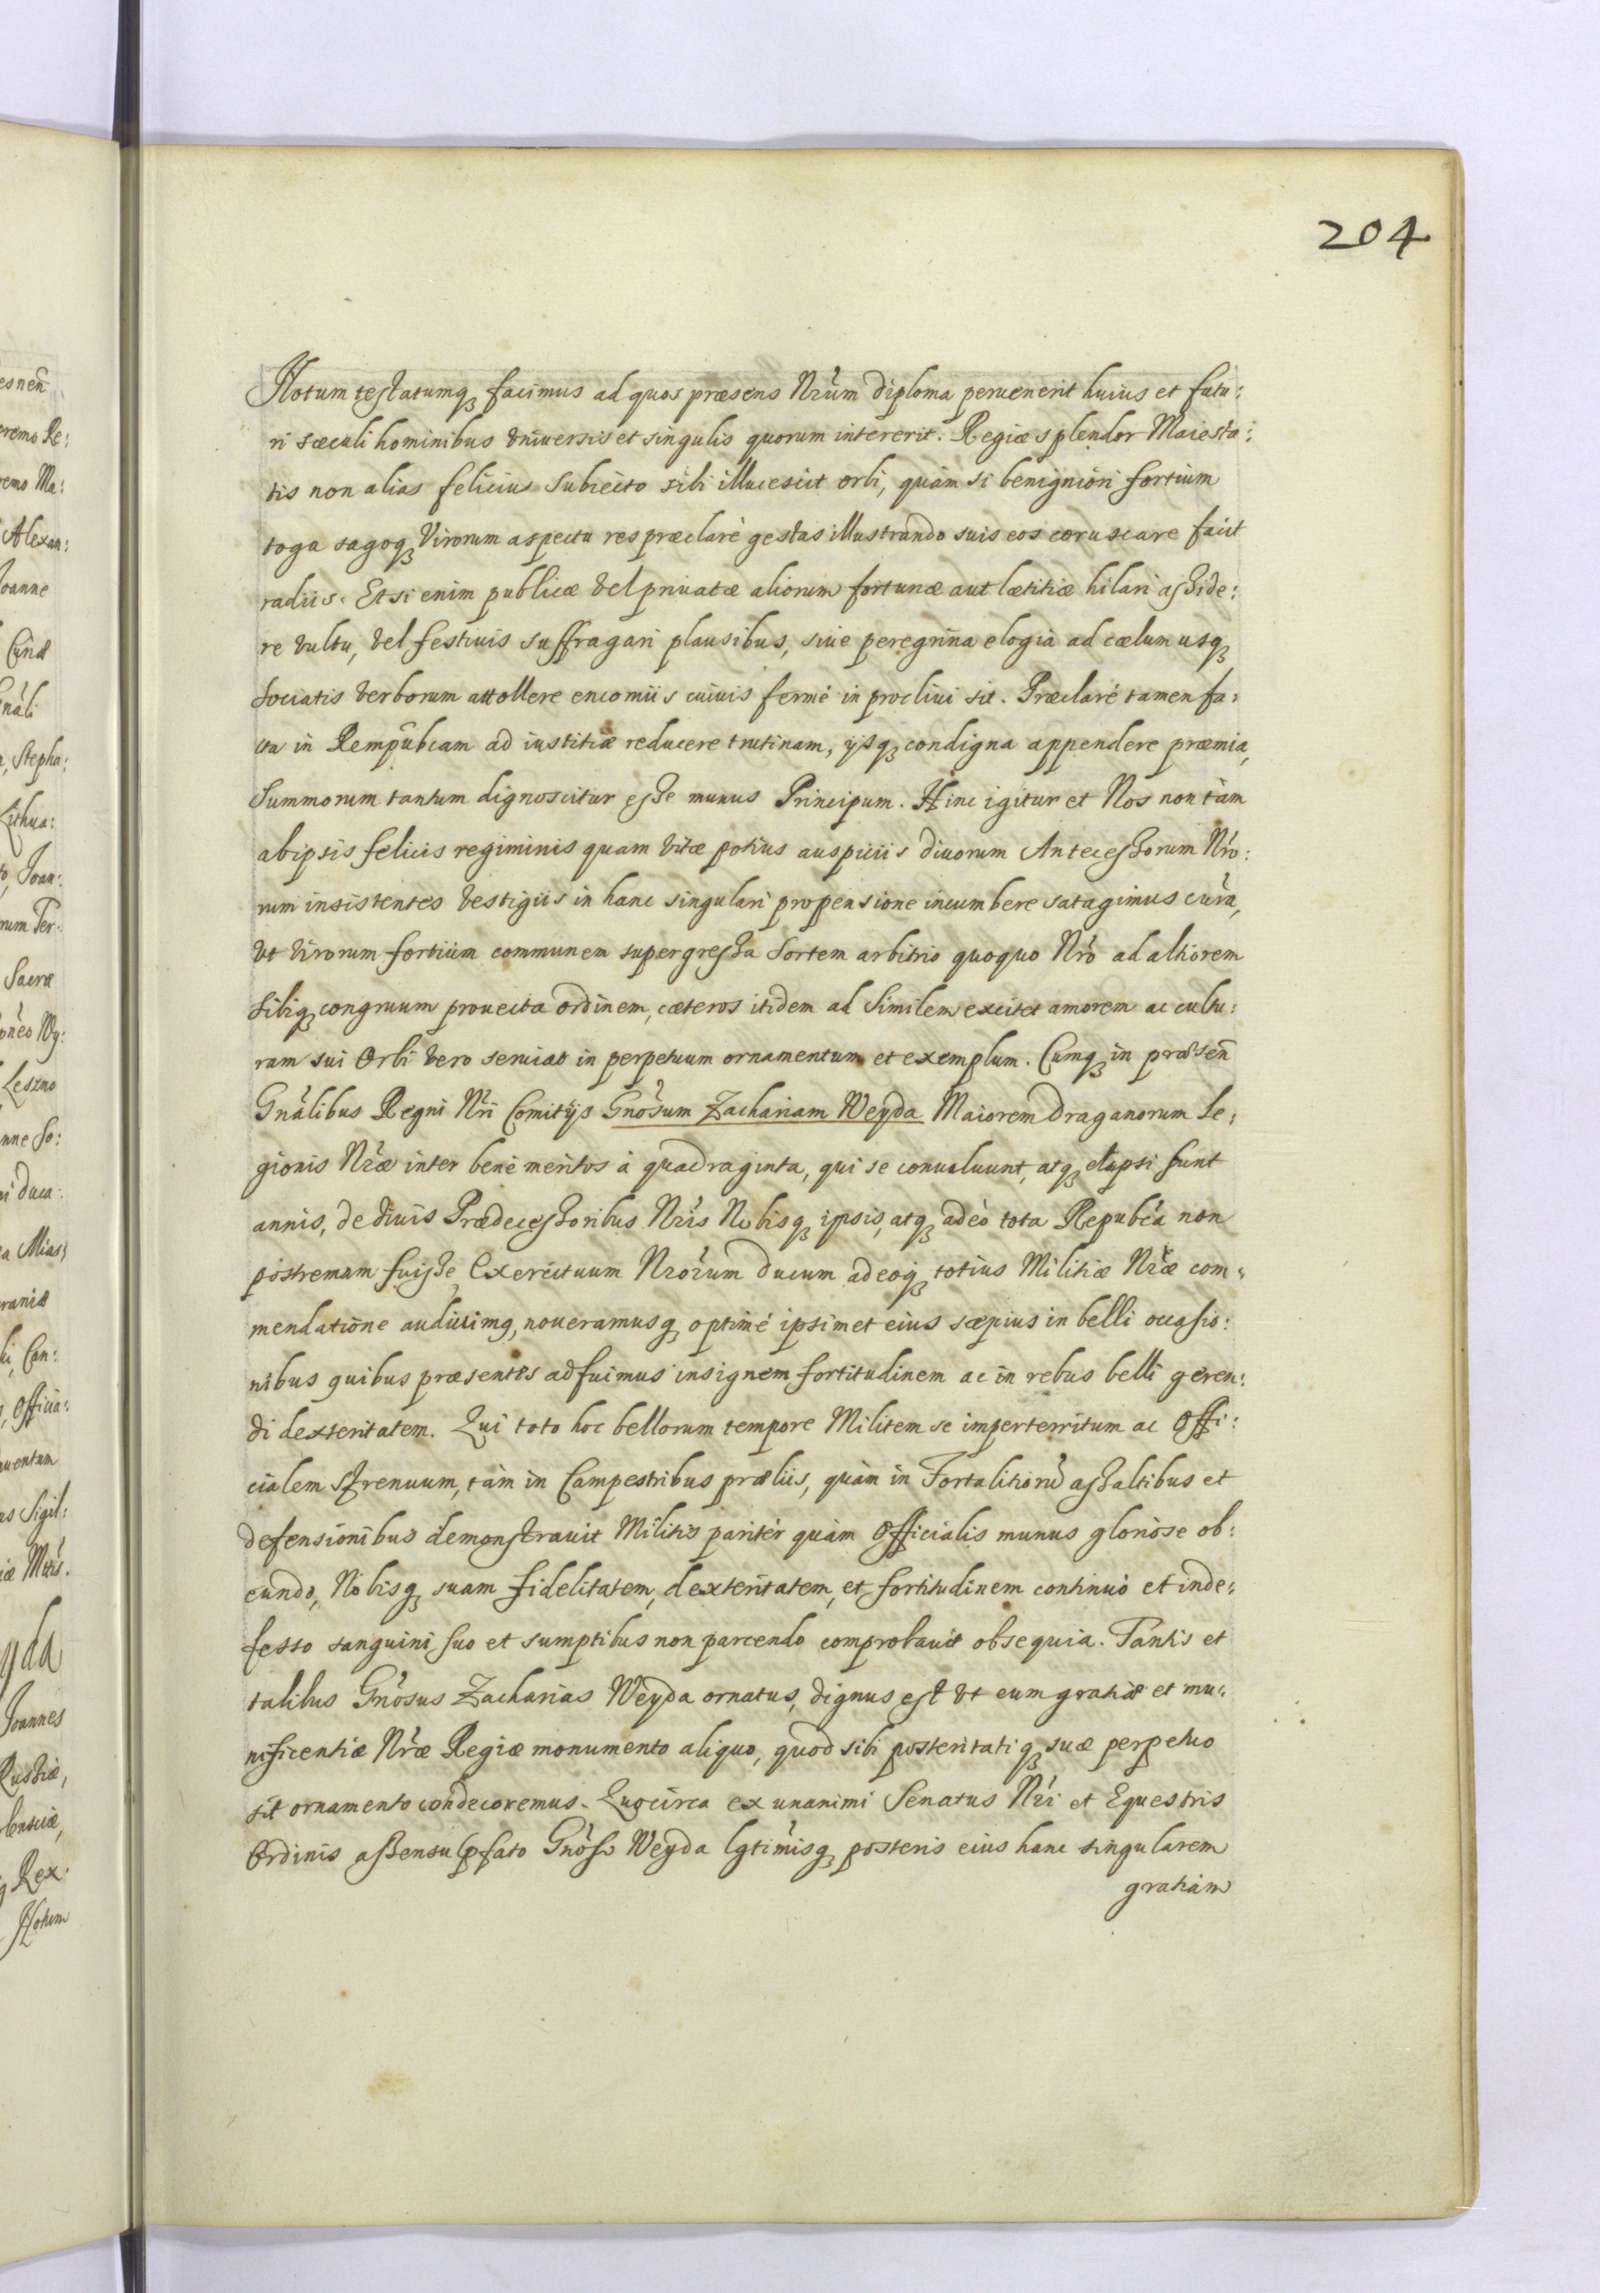 204
Notum testatumq; facimus ad quos præsens Nrũm diploma peruenerit huius et futu:
ri sæculi hominibus Vniuersis et singulis quorum intererit. Regiæ splendor Maiesta:
tis non alias felicius Subiecto sibi illucescit orbi, quàm si benigniori fortium
toga sagoq; Virorum aspectu res præclarè gestas illustrando suis eos coruscare facit
radiis. Et si enim publicæ vel priuatæ aliorum fortunæ aut lætitiæ hilari asside:
re vultu, vel festiuis suffragari plausibus, siue peregrina elogia ad cœlum usq;
Sociatis verborum attollere encomiis cuiuis fermè in procliui sit. Præclarè tamen fa:
cta in Rempũbcam ad iustitiæ reducere trutinam, ijsq; condigna appendere præmia,
Summorum tantum dignoscitur esse munus Principum. Hinc igitur et Nos non tàm
ab ipsis felicis regiminis quam vitæ potius auspiciis diuorum Antecessorum Nro:
rum insistentes vestigiis in hanc singulari propensione incumbere satagimus cura,
vt Virorum fortium communem supergressa Sortem arbitrio quoquo Nrõ ad altiorem
sibiq; congruum prouecta ordinem, cæteros itidem ad Similem excitet amorem ac cultu:
ram sui Orbi vero seruiat in perpetuum ornamentum et exemplum. Cumq; in præsen̄
Gnãlibus Regni Nri Comitijs Gnõsum Zachariam Weyda Maiorem Draganorum Le:
gionis Nræ inter benè meritos à quadraginta, qui se conuoluunt, atq; elapsi sunt
annis, de diuis Prædecessoribus Nris Nobisq; ipsis, atq; adeò tota Republcã non
postremam fuisse Exercituum Nrorum ducum adeoq; totius Militiæ Nræ com:
mendatione audiuimq, noueramusq; optimè ipsimet eius sæpius in belli occasio:
nibus quibus præsentes adfuimus insignem fortitudinem ac in rebus belli geren:
di dexteritatem. Qui toto hoc bellorum tempore Militem se imperterritum ac Offi:
cialem strenuum, tàm in Campestribus præliis, quàm in Fortalitiorũ assaltibus et
defensionibus demonstrauit Militis paritèr quàm Officialis munus gloriose ob:
eundo, Nobisq; suam fidelitatem, dexteritatem, et fortitudinem continuò et inde:
fesso sanguini suo et sumptibus non parcendo comprobauit obsequia. Tantis et
talibus Gnõsus Zacharias Weyda ornatus, dignus est vt eum gratiæ et mu:
nificentiæ Nræ Regiæ monumento aliquo, quod sibi posteritatiq; suæ perpetuo
sit ornamento condecoremus. Quocirca ex unanimi Senatus Nri et Equestris
Ordinis assensu pfato Gnõso Weyda lgtimisq; posteris eius hanc singularem
gratiam